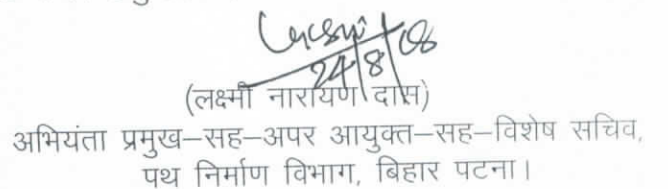 24/8/08
(लक्ष्मी नारायण दास)
अभियंता प्रमुख–सह–अपर आयुक्त–सह–विशेष सचिव,
पथ निर्माण विभाग, बिहार पटना।